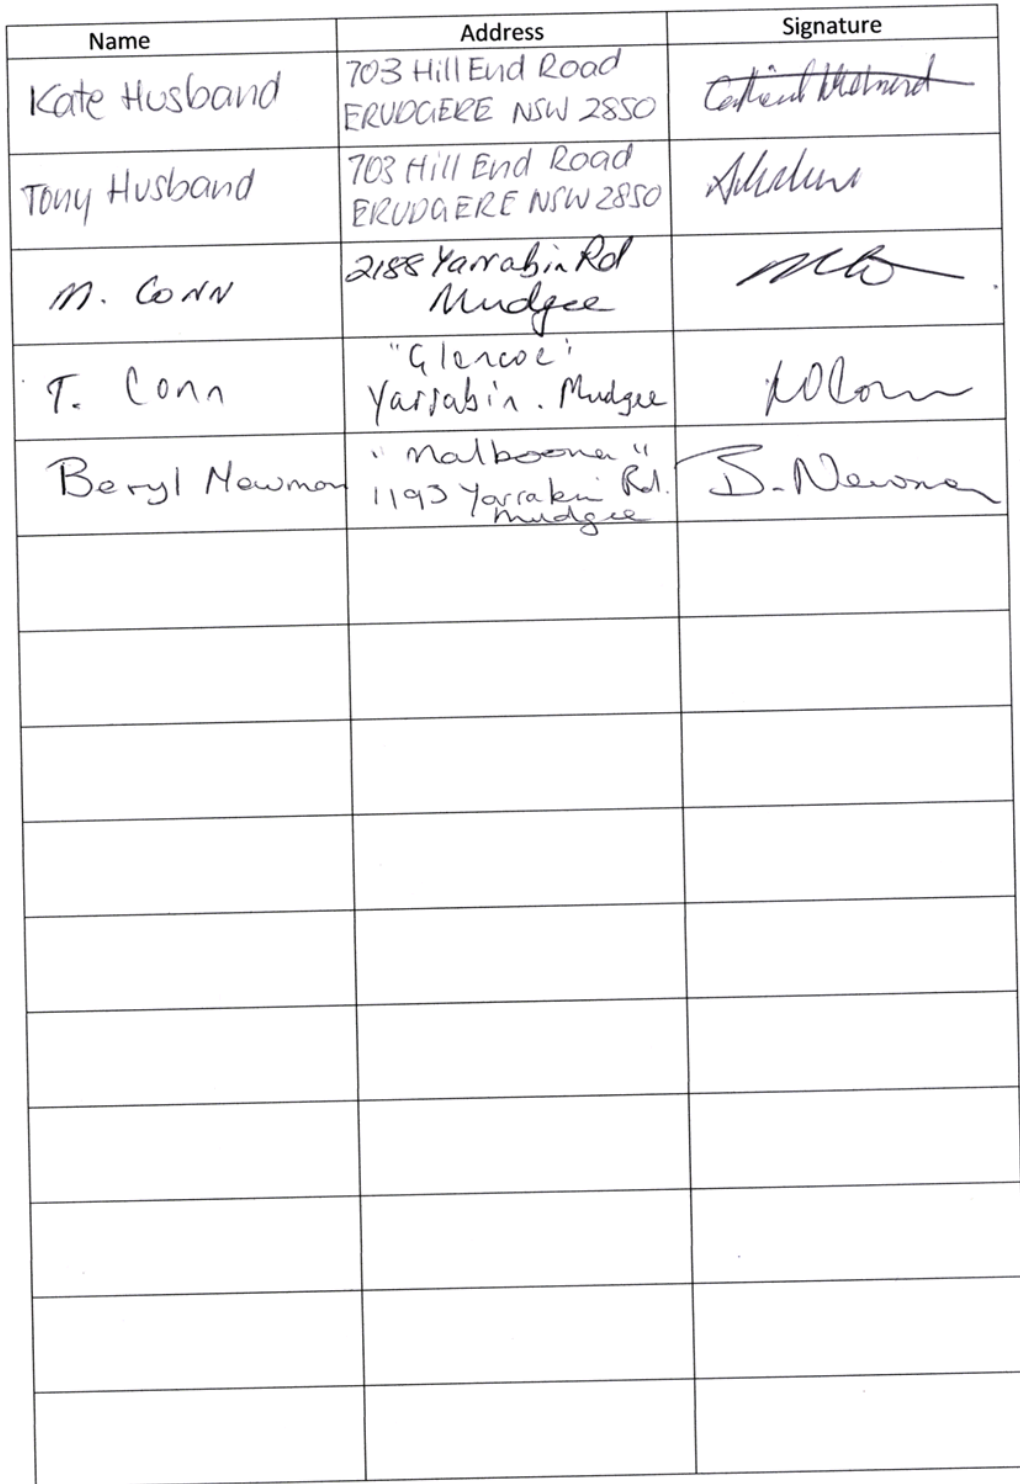 Name Address Signature
Kate Husband
703 Hill End Road
ERUDGERE NSW 2850
Tony Husband
703 Hill End Road
ERUDGERE NSW 2850
M. CONN
2188 Yarrabin Rd
Mudgee
T. Conn
"Glencoe"
Yarrabin. Mudgee
Beryl Newman
"
"
1193 Yarrabin Rd.
Mudgee
B. Newman